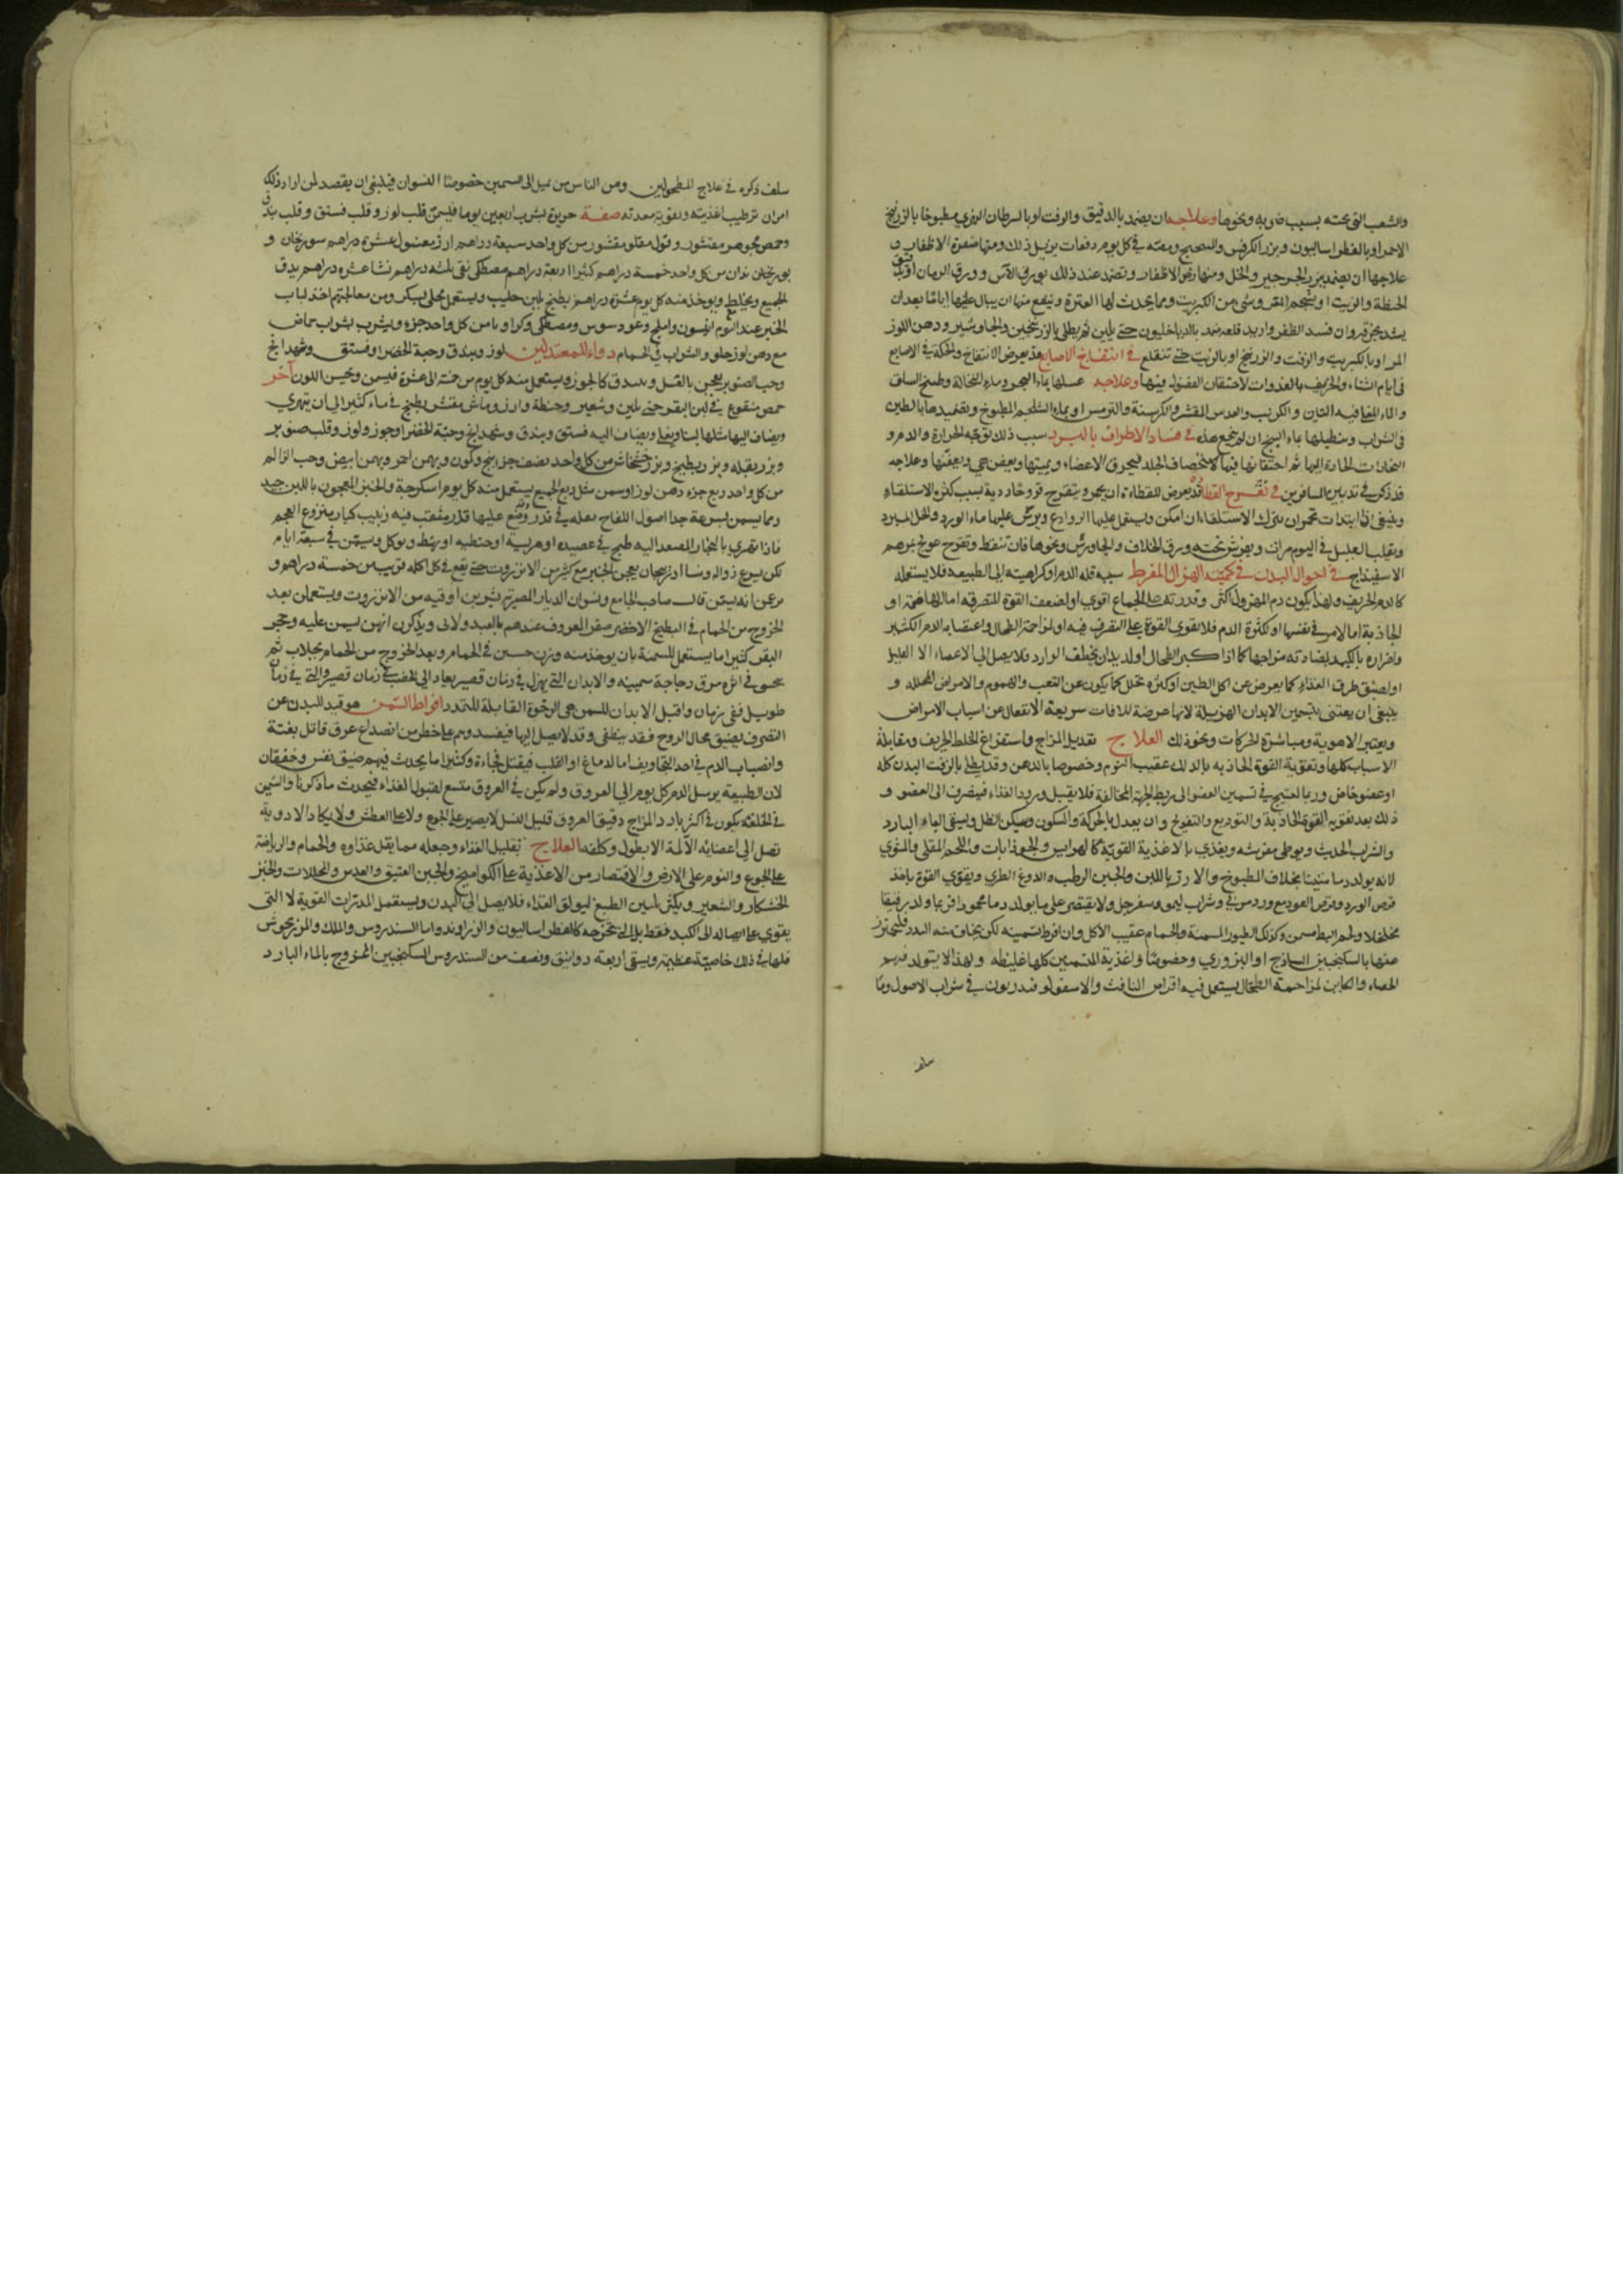 والشعب التي تحته بسبب ضربة ونحوها وعلاجه ان يضمد بالدقيق والزفت او بالسرطان النهري مطبوخا بالزرنيخ
الاحمر او بالفطراساليون وبزر الكرفس والمصطكي ومعه في كل يوم دفعات يزيل ذلك ومنها صفرة الاظفار و
علاجها ان يضمد ببزر الجرجير والخل ومنها رض الاظفار وتضمد عند ذلك بورق الآس وورق الرمان او بدقيق
الحنطة والزيت او بشحم البقر وشيء من الكبريت ومما يحدث لها العثرة وينفع منها ان يبال عليها اياما بعد ان
يشد بخرقة وان فسد الظفر واريد قلعه ضمد بالدياخليون حتى يلين ثم يطلى بالزرنيخين والجاوشير ودهن اللوز
المر او بالكبريت والزفت والزرنيخ او بالزيت حتى تنقلع في انتفاخ الاصابع قد يعرض الانتفاخ والحكة في الاصابع
في ايام الشتاء والخريف بالغدوات لاحتقان الفضول فيها وعلاجه غسلها بماء البحر وماء النخالة وطبيخ السلق
والماء المغلي فيه التين والكرنب والعدس المقشر والكرسنة والترمس او بماء الشلجم المطبوخ وتضميدها بالطين
في الشراب وتنطيلها بماء السبخ ان لم ينجع هذه في فساد الاطراف بالبرد سبب ذلك توجه الحرارة والدم و
البخارات الحادة اليها ثم احتقانها فيها لاستحصاف الجلد فيحرق الاعضاء ويميتها ويعفن هي ويعفنها وعلاجه
قد ذكر في تدبير المسافرين في تقرح القطاة قد يعرض للقطاة ان يحمر ويتقرح قروحا ردية بسبب كثرة الاستلقاء
وينبغي اذا ابتدات تحمر ان يترك الاستلقاء ان امكن ويستعمل عليها الروادع ويرش عليها ماء الورد والخل المبرد
ويقلب العليل في اليوم مرات ويفرش تحته ورق الخلاف والجاورس ونحوها فان تنفط وتقرح عولج بمرهم
الاسفيذاج في احوال البدن في كميته الهزال المفرط سببه قلة الدم او كراهيته الى الطبيعة فلا يستعمله
كالدم الحريف ولهذا يكون دم المهزول اكثر وقدرته على الجماع اقوى او لضعف القوة المتصرفة اما الهاضمة او
الجاذبة اما لامر في نفسها او لكثرة الدم فلا تقوى القوة على التصرف فيه او لمزاحمة الطحال واغتصابه الدم الكثير
واضراره بالكبد لمضادته مزاجها كما اذا كبر الطحال او لديدان تخطف الوارد فلا يصل الى الاعضاء الا القليل
او لضيق طرق الغذاء كما يعرض عن اكل الطين او كثرة تحلل كما يكون عن التعب والهموم والامراض المحللة و
ينبغي ان يعتنى بتسمين الابدان الهزيلة لانها عرضة للافات سريعة الانفعال عن اسباب الامراض
وتغير الاهوية ومباشرة الحركات ونحو ذلك العلاج تعديل المزاج واستفراغ الخلط الحريف ومقابلة
الاسباب كلها وتقوية القوة الجاذبة بالدلك عقيب النوم وخصوصا بالدهن وقد يطلى بالزفت البدن كله
او عضو خاص وربما احتيج في تسمين العضو الى ربط الجهة المخالفة فلا يقبل وريد الغذاء فيصرف الى العضو و
ذلك بعد تقوية القوة الجاذبة والتوديع والتفريح وان يعدل بالحركة والسكون ويسكن الظل ويسقى الماء البارد
والشراب الحديث ويوطى مفرشه ويغذى بالاغذية القوية كالهرايس والجوذابات واللحم المقلي والمشوي
لانه يولد دما متينا بخلاف المطبوخ والارز باللبن والجبن الرطب والدوغ الطري ويقوي القوة باخذ
قرص الورد وقرص العود مع ورد مربى وشراب ليمو وسفرجل ولا يقتصر على ما يولد دما محمودا فربما ولد رقيقا
متخلخلا ولحم البط مسمن وكذلك الطيور المسمنة والحمام عقيب الاكل وان افرط تسمينه لكن يخاف منه السدد فليحترز
عنها بالسكنجبين الساذج او البزوري وخصوصا واغذية المتسمنين كلها غليظة ولهذا لا يتولد فيهم
الحصاء والكاين لمزاحمة الطحال يستعمل فيه اقراص الغافث والاسقولوفندريون في شراب الاصول وما
سلف ذكره في علاج المطحولين ومن الناس من يميل الى السمين خصوصا النسوان فينبغي ان يقصد لمن اراد ذلك
امران ترطيب اغذيته وتقوية معدته صفة حريرة تشرب اربعين يوما فليسمن قلب لوز وقلب فستق وقلب بندق
وحمص مجوهر مقشور وفول مقلو مقشور من كل واحد سبعة دراهم ارز مغسول عشرة دراهم سورنجان و
بوزيدان من كل واحد خمسة دراهم كثيرا اربعة دراهم مصطكي نقي ثلثة دراهم نشا عشرة دراهم يدق
الجميع ويخلط ويوخذ منه كل يوم عشرة دراهم يطبخ بلبن حليب ويستعمل محلى بسكر ومن معالجتهم اخذ لباب
الخبز عند النوم انيسون واملج وعود سوس ومصطكي وكراويا من كل واحد جزء ويشرب بشراب حماض
مع دهن لوز حلو والشراب في الحمام دواء للمعتدلين لوز وبندق وحبة الخضرا وفستق وشهدانج
وحب الصنوبر يعجن بالعسل ويبندق كالجوز ويستعمل منه كل يوم من خمسة الى عشرة فيسمن ويحسن اللون آخر
حمص منقوع في لبن البقر حتى يلين وشعير وحنطة وارز وماش مقشر يطبخ في ماء كثير الى ان يتهرى
ويضاف اليها مثلها لبنا ويغلى ويضاف اليه فستق وبندق وشهدانج وحبة الخضرا وجوز ولوز وقلب صنوبر
وبزر بقلة وبزر بطيخ وبزر خشخاش من كل واحد نصف جزء بنج وكمون وبهمن احمر وبهمن ابيض وحب الزلم
من كل واحد ربع جزء دهن لوز او سمن مثل ربع الجميع يستعمل منه كل يوم اسكرجة والخبز المعجون باللبن جيد
ومما يسمن بسرعة جدا اصول اللفاح يعليه في قدر وتضع عليها قدر مثقب فيه زبيب كبار منزوع العجم
فاذا تهرى بالبخار المصعد اليه طبخ في عصيدة او هريسة او حنطية او بهط ويوكل ويسمن في سبعة ايام
لكن يسرع زواله ونساء اذربيجان يعجن الخبز مع كثير من الانزروت حتى يقع في كل اكلة قريب من خمسة دراهم و
يزعمن انه يسمن قال صاحب الجامع ونسوان الديار المصرية يشربن اوقية من الانزروت ويستعملن بعد
الخروج من الحمام في البطيخ الاخضر صفر المعروف عندهم بالعبدولاني ويذكرن انهن يسمن عليه وحجر
البقر كثيرا ما يستعمل للسمنة بان يوخذ منه وزن حبتين في الحمام وبعد الخروج من الحمام بجلاب ثم
يحسو في اثره مرق دجاجة سمينة والابدان التي يهزل في زمان قصير يعاد الى الخصب في زمان قصير والتي في زمان
طويل ففي زمان واقبل الابدان للسمن هي الرخوة القابلة للتمدد افراط السمن هو قيد للبدن عن
التصرف يضيق مجال الروح فقد ينطفي وقد لا يصل اليها فيفسد وهم على خطر من انصداع عرق قاتل بغتة
وانصباب الدم في احد التجاويف اما الدماغ او القلب فيقتل فجاءة وكثيرا ما يحدث فيهم ضيق نفس وخفقان
لان الطبيعة يرسل الدم كل يوم الى العروق ولم يكن في العروق متسع لقبول الغذاء فيحدث ما ذكرنا والسمين
في الخلقة يكون في اكثر بارد المزاج دقيق العروق قليل النسل لا يصبر على الجوع ولا على العطش ولا يكاد الادوية
تصل الى اعضائه الآلمة الا بطول وكلفة العلاج تقليل الغذاء وجعله مما يقل غذاوه والحمام والرياضة
على الجوع والنوم على الارض والاقتصار من الاغذية على الكواميخ والجبن العتيق والعدس والمخللات والخبز
الخشكار والشعير ويكثر تليين الطبع ليزلق الغذاء فلا يصل الى البدن ويستعمل المدرات القوية لا التي
يقوي على ايصاله الى الكبد فقط بل التي تخرجه كالفطراساليون والزراوند واما السندروس واللك والمرزنجوش
فلها في ذلك خاصية عظيمة ويسقى اربعة دوانيق ونصف من السندروس السكنجبين الممزوج بالماء البارد